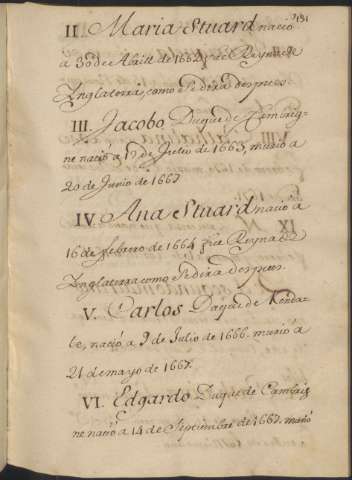 II Maria Stuard nació
a 30 de Abrill de 1662 fue Reyna de
Inglaterra, como se dira despues.
III. Jacobo Duque de Cambrig-
ne nació a 12 de Julio de 1663, murio a
20 de Junio de 1667
IV. Ana Stuard nació a
16 de febrero de 1664 fue Reyna de
Inglaterra como se dira despues.
V. Carlos Duque de Kenda-
le, nació a 9 de Julio de 1666. murió a
21 de mayo de 1667.
VI. Edgardo Duque de Cambrig
ne nació a 14 de Septiembre de 1667. murió